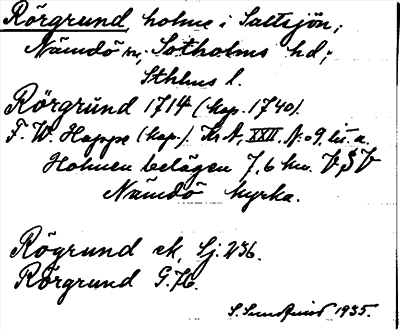 Rörgrund, holme i Saltsjön;
Nämdö sn, Sotholms hd;
Sthlms l.
Rörgrund 1714 (kop. 1740).
F. W. Hoppe (kop.) Kr A. XXII. N:o 9.
Holmen belägen 7,6 km. VSV
Nämdö kyrka.
Rögrund ek, Sj. 236.
Rörgrund G.
S. Sundqvist 1935.